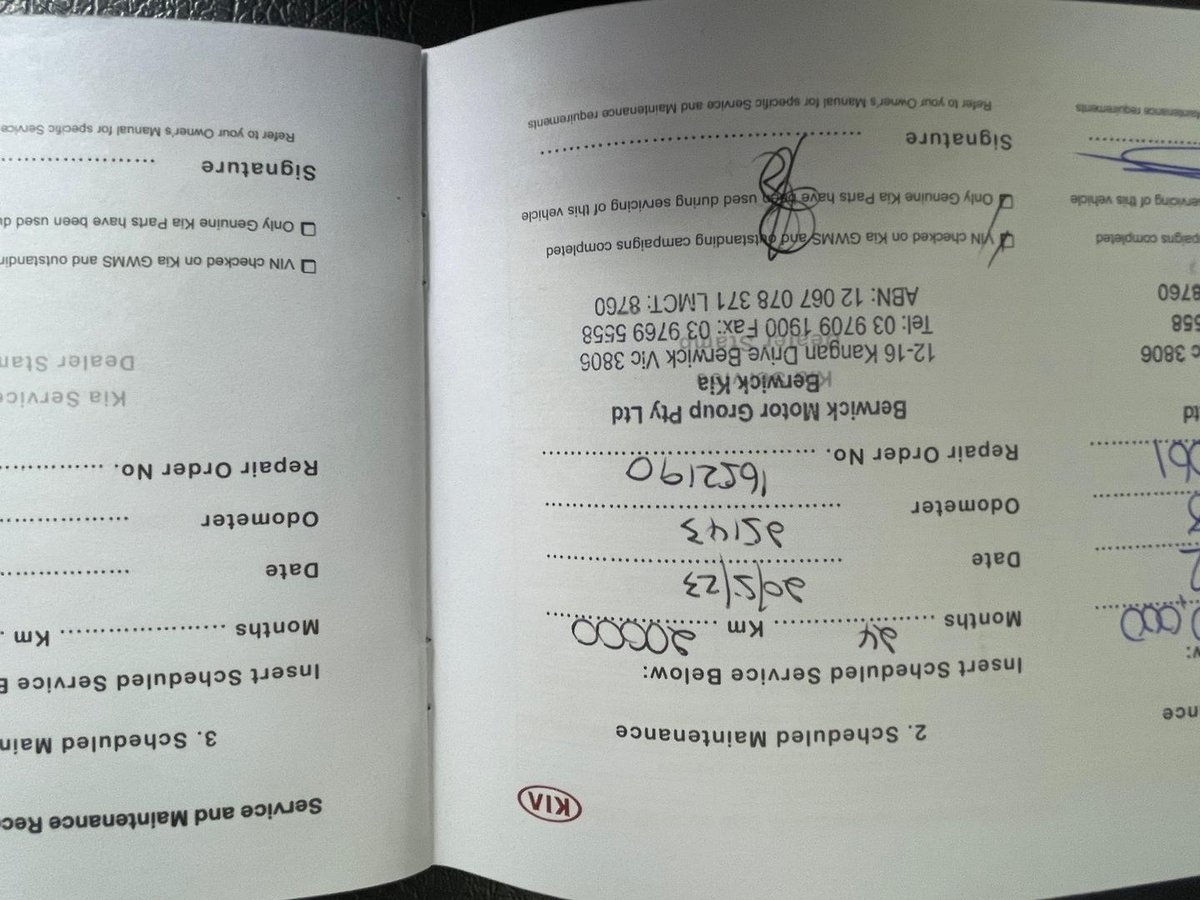 nce
w:
2. Scheduled Maintenance
Insert Scheduled Service Below:
Months 24 Km 20000
Date 20/5/23
Odometer 25143
Repair Order No. 1652190
Berwick Motor Group Pty Ltd
Kia Service
Berwick Kia
12-16 Kangan Drive Berwick Vic 3806
Dealer Stamp
Tel: 03 9709 1900 Fax: 03 9769 5558
ABN: 12 067 078 371 LMCT: 8760
VIN checked on Kia GWMS and outstanding campaigns completed
Only Genuine Kia Parts have been used during servicing of this vehicle
Signature
Refer to your Owner's Manual for specific Service and Maintenance requirements
KIA
td
c 3806
558
8760
paigns completed
ervicing of this vehicle
requirements
Service and Maintenance Reco
3. Scheduled Main
Insert Scheduled Service B
Months Km
Date
Odometer
Repair Order No.
Kia Service
Dealer Stam
VIN checked on Kia GWMS and outstandin
Only Genuine Kia Parts have been used du
Signature
Refer to your Owner's Manual for specific Service